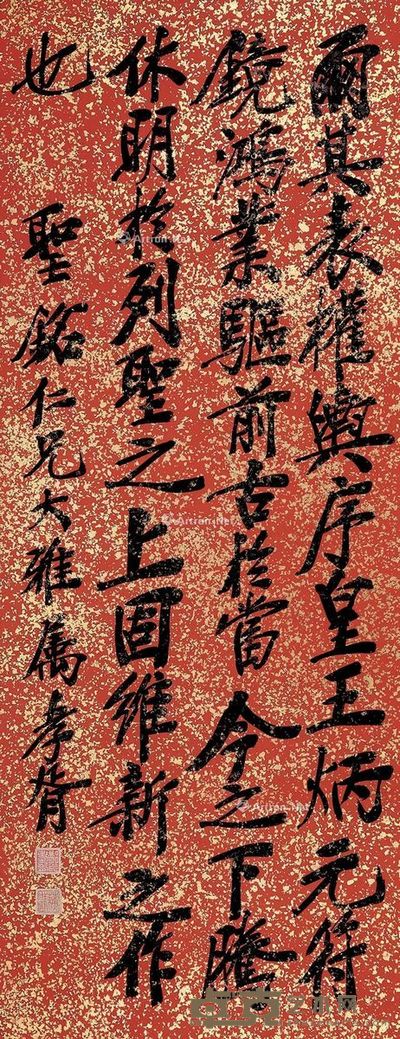 爾其表權輿序皇王炳元符
鏡鴻業驅前古於當今之下騰
休明於列聖之上固維新之作
也 聖銘仁兄大雅屬 孝胥
Artron.Net
Artron.Net
Artron.Net